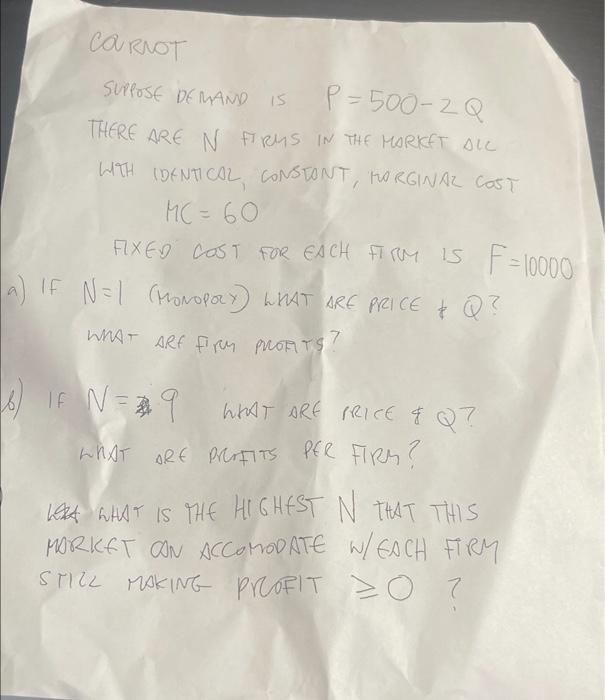 COURNOT
SUPPOSE DEMAND IS P = 500 - 2Q
THERE ARE N FIRMS IN THE MARKET ALL
WITH IDENTICAL, CONSTANT, MARGINAL COST
MC = 60
FIXED COST FOR EACH FIRM IS F = 10000
a) IF N=1 (MONOPOLY) WHAT ARE PRICE & Q?
WHAT ARE FIRM PROFITS?
b) IF N = 9 WHAT ARE PRICE & Q?
WHAT ARE PROFITS PER FIRM?
WHAT IS THE HIGHEST N THAT THIS
MARKET CAN ACCOMODATE W/ EACH FIRM
STILL MAKING PROFIT ≥ 0 ?